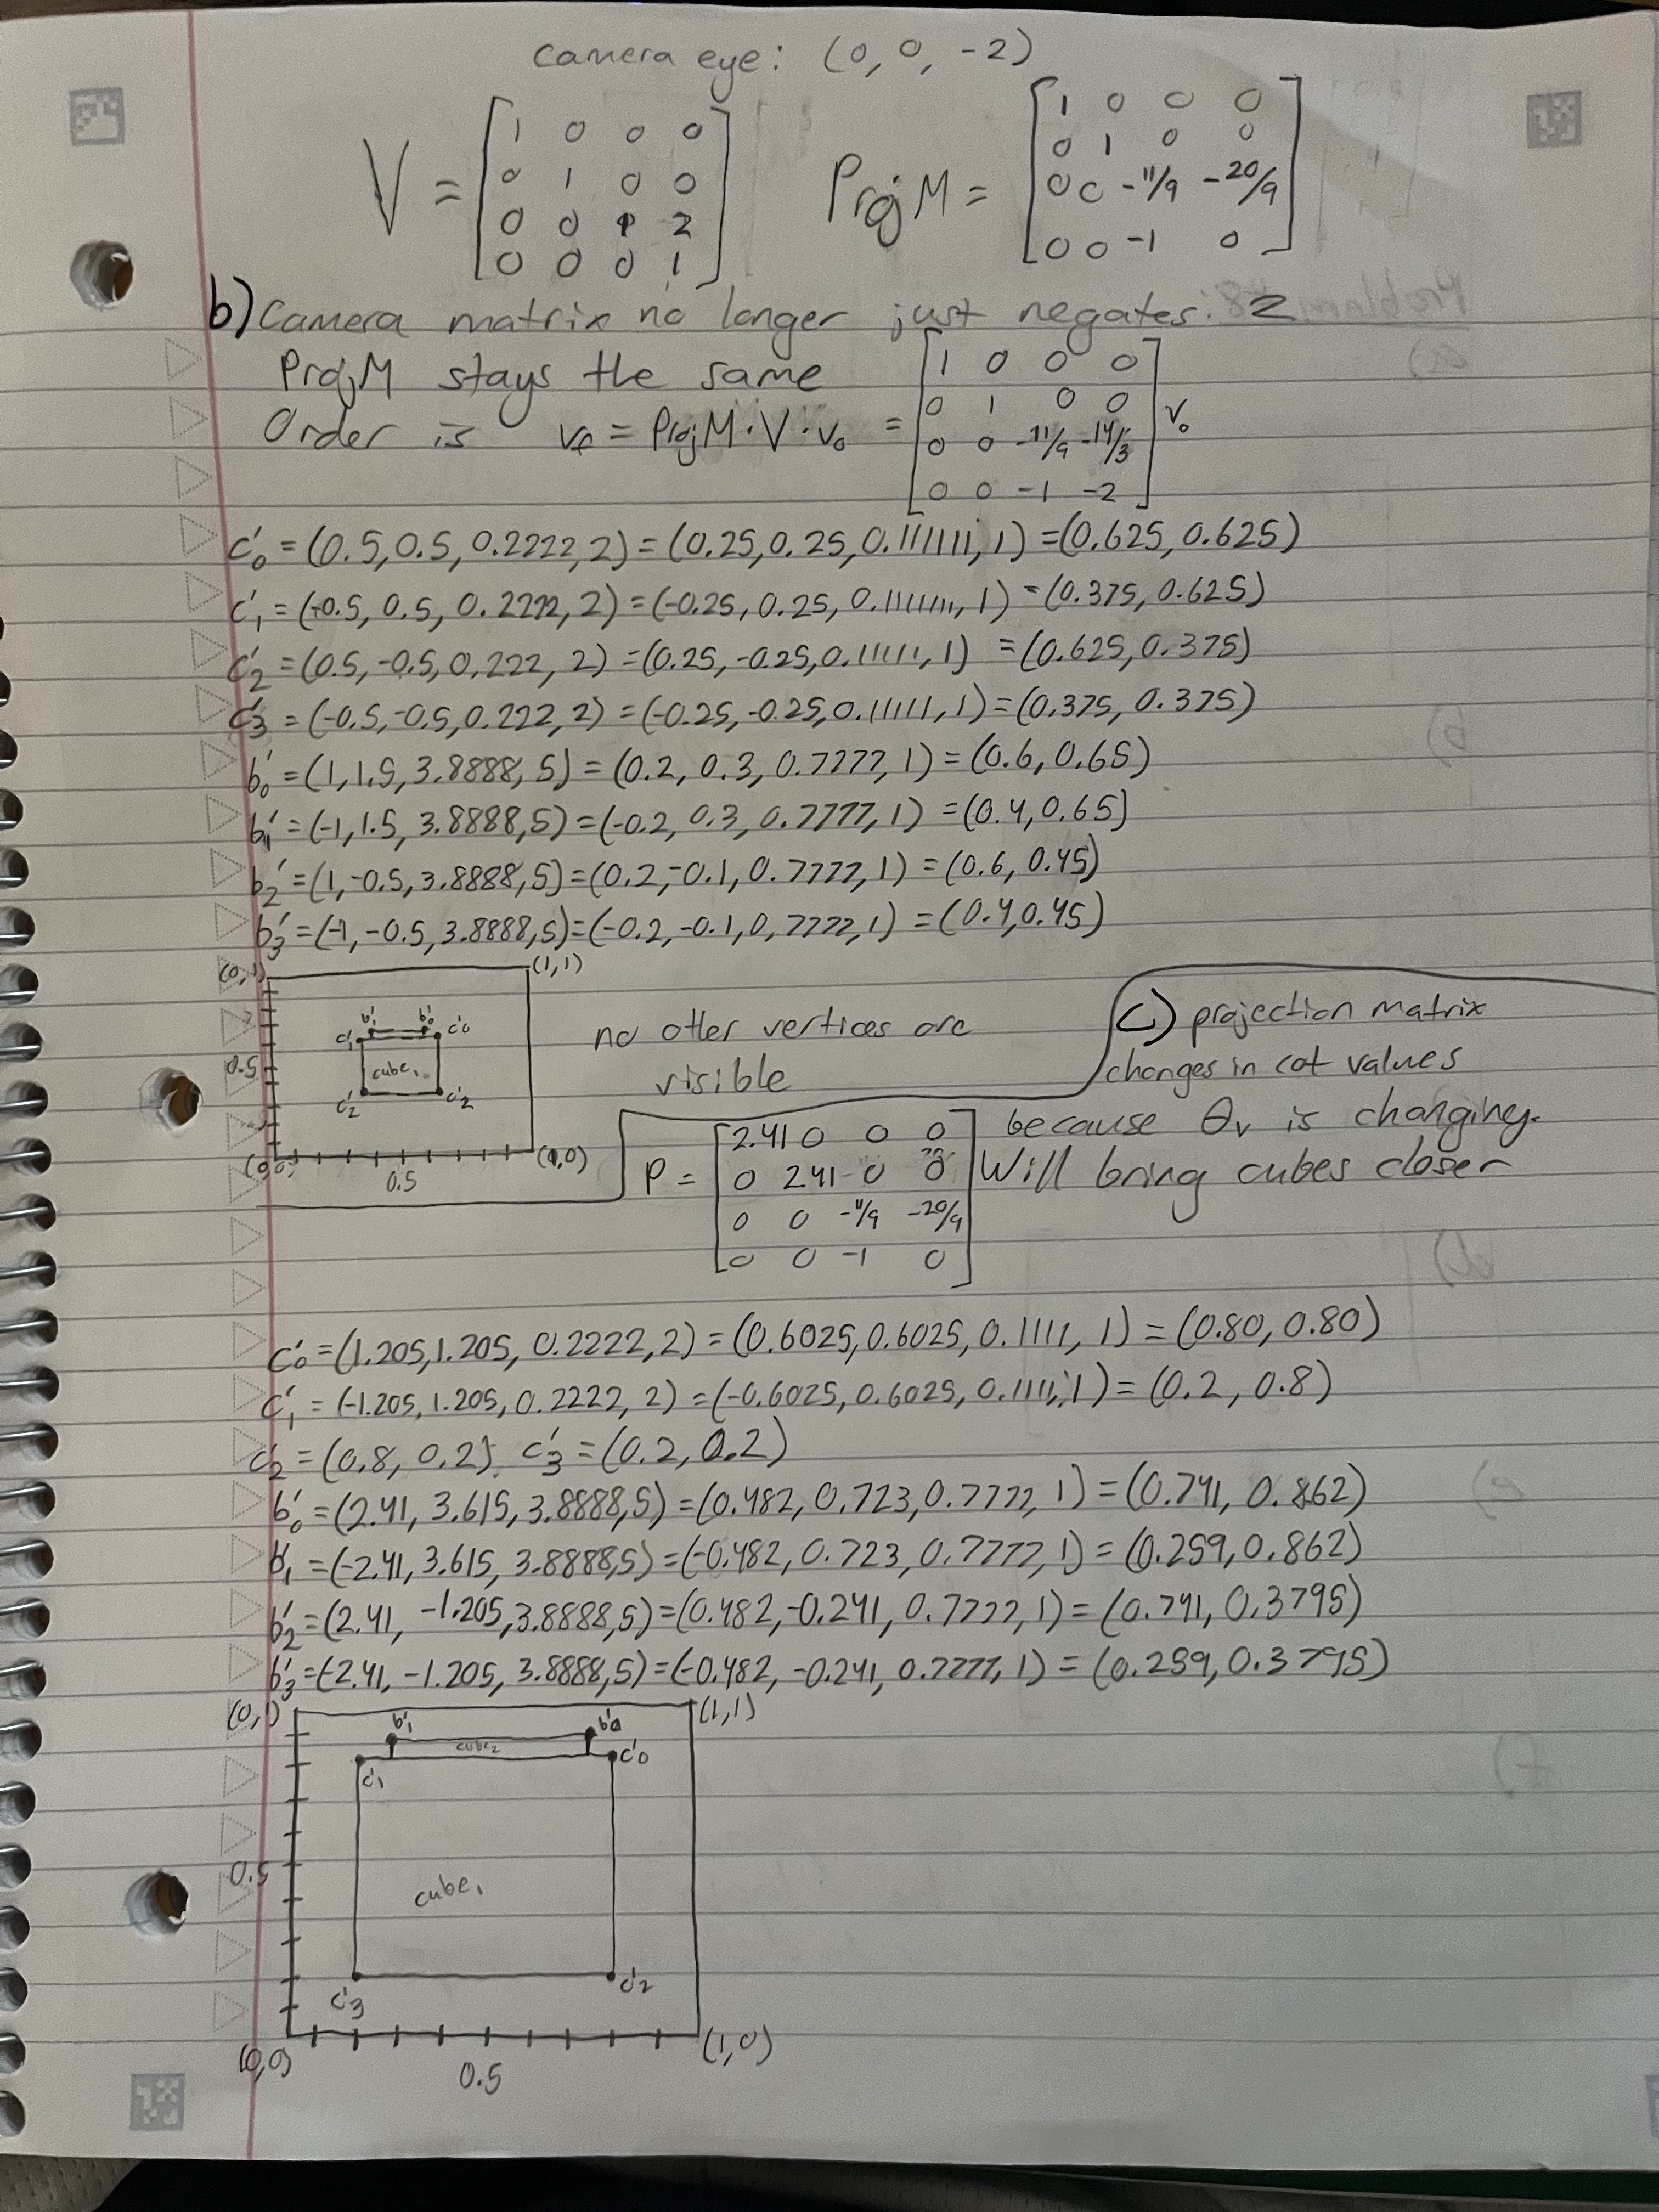 camera eye: (0, 0, -2)
V = [1 0 0 0
0 1 0 0
0 0 1 2
0 0 0 1]
ProjM = [1 0 0 0
0 1 0 0
0 0 -11/9 -20/9
0 0 -1 0]
b) Camera matrix no longer just negates z
ProjM stays the same
Order is vf = ProjM · V · v₀ = [1 0 0 0
0 1 0 0
0 0 -11/9 -14/3
0 0 -1 -2] v₀
c'₀ = (0.5, 0.5, 0.2222, 2) = (0.25, 0.25, 0.111111, 1) = (0.625, 0.625)
c'₁ = (-0.5, 0.5, 0.2222, 2) = (-0.25, 0.25, 0.111111, 1) = (0.375, 0.625)
c'₂ = (0.5, -0.5, 0.222, 2) = (0.25, -0.25, 0.11111, 1) = (0.625, 0.375)
c'₃ = (-0.5, -0.5, 0.222, 2) = (-0.25, -0.25, 0.11111, 1) = (0.375, 0.375)
b'₀ = (1, 1.5, 3.8888, 5) = (0.2, 0.3, 0.7777, 1) = (0.6, 0.65)
b'₁ = (-1, 1.5, 3.8888, 5) = (-0.2, 0.3, 0.7777, 1) = (0.4, 0.65)
b'₂ = (1, -0.5, 3.8888, 5) = (0.2, -0.1, 0.7777, 1) = (0.6, 0.45)
b'₃ = (-1, -0.5, 3.8888, 5) = (-0.2, -0.1, 0.7777, 1) = (0.4, 0.45)
(0,1) (1,1)
b'₁ b'₀
c'₁ c'₀
0.5 cube₁
c'₂ c'₂
(0,0) 0.5 (1,0)
no other vertices are
visible
c) projection matrix
changes in cot values
because θv is changing.
Will bring cubes closer
P = [2.41 0 0 0
0 2.41 0 0
0 0 -11/9 -20/9
0 0 -1 0]
c'₀ = (1.205, 1.205, 0.2222, 2) = (0.6025, 0.6025, 0.1111, 1) = (0.80, 0.80)
c'₁ = (-1.205, 1.205, 0.2222, 2) = (-0.6025, 0.6025, 0.1111, 1) = (0.2, 0.8)
c'₂ = (0.8, 0.2) c'₃ = (0.2, 0.2)
b'₀ = (2.41, 3.615, 3.8888, 5) = (0.482, 0.723, 0.7777, 1) = (0.741, 0.862)
b'₁ = (-2.41, 3.615, 3.8888, 5) = (-0.482, 0.723, 0.7777, 1) = (0.259, 0.862)
b'₂ = (2.41, -1.205, 3.8888, 5) = (0.482, -0.241, 0.7777, 1) = (0.741, 0.3795)
b'₃ = (-2.41, -1.205, 3.8888, 5) = (-0.482, -0.241, 0.7777, 1) = (0.259, 0.3795)
(0,1) (1,1)
b'₁ b'₀
cube₂
c'₁ c'₀
0.5
cube₁
c'₃ c'₂
(0,0) 0.5 (1,0)